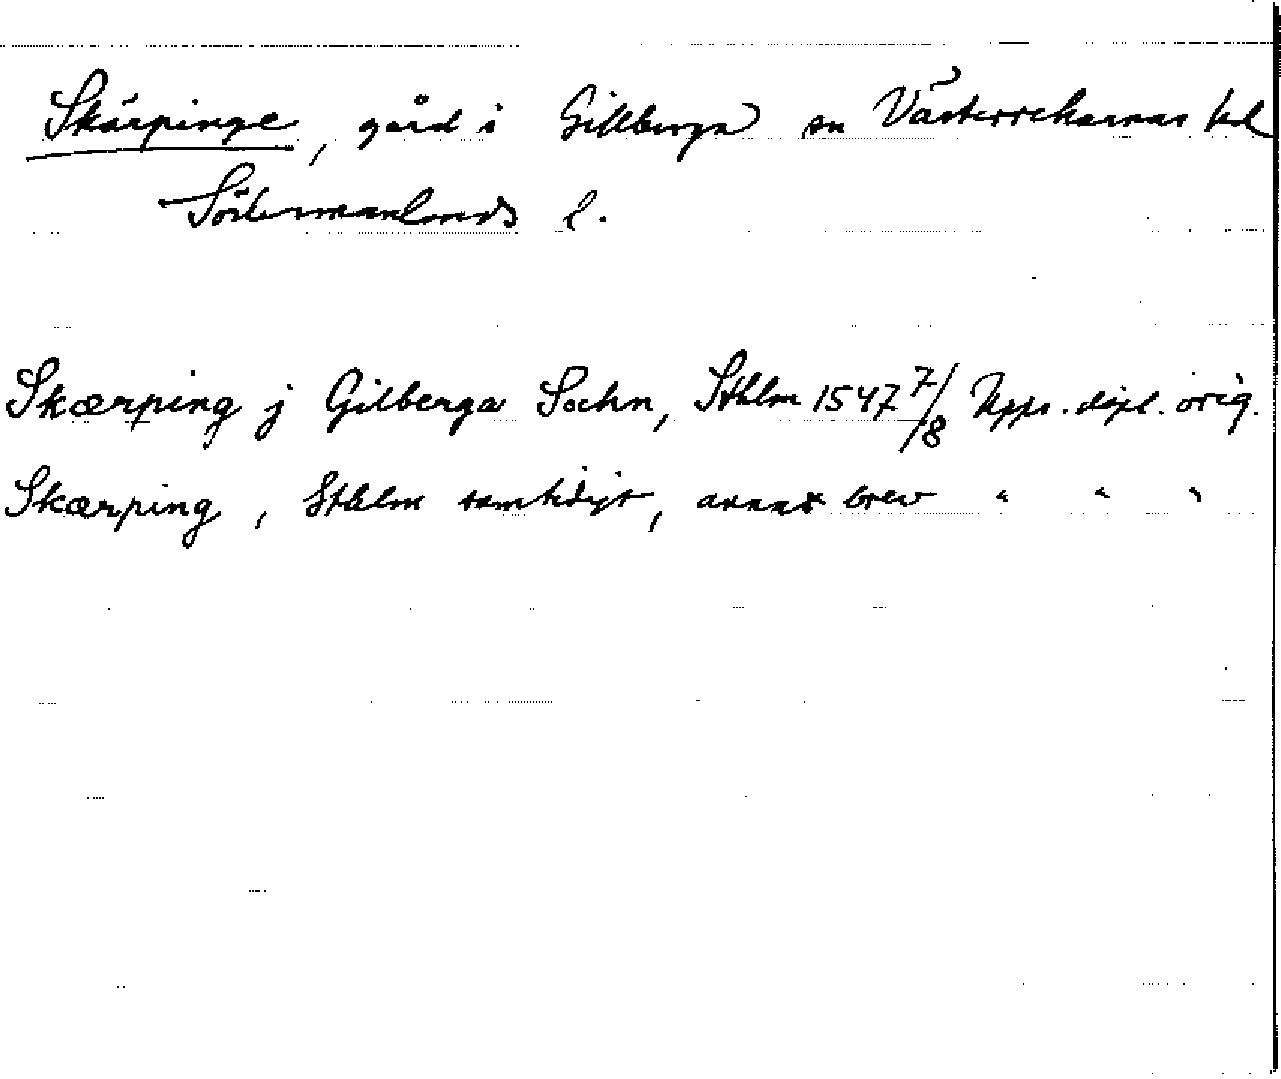 Skärpinge, gård i Gillberga sn Västerrekarnas hd
Södermanlands l.
Skærping j Gilberga Sochn, Sthlm 1547 7/8 Upps. dipl. orig.
Skærping, Sthlm samtidigt, annat brev " " "